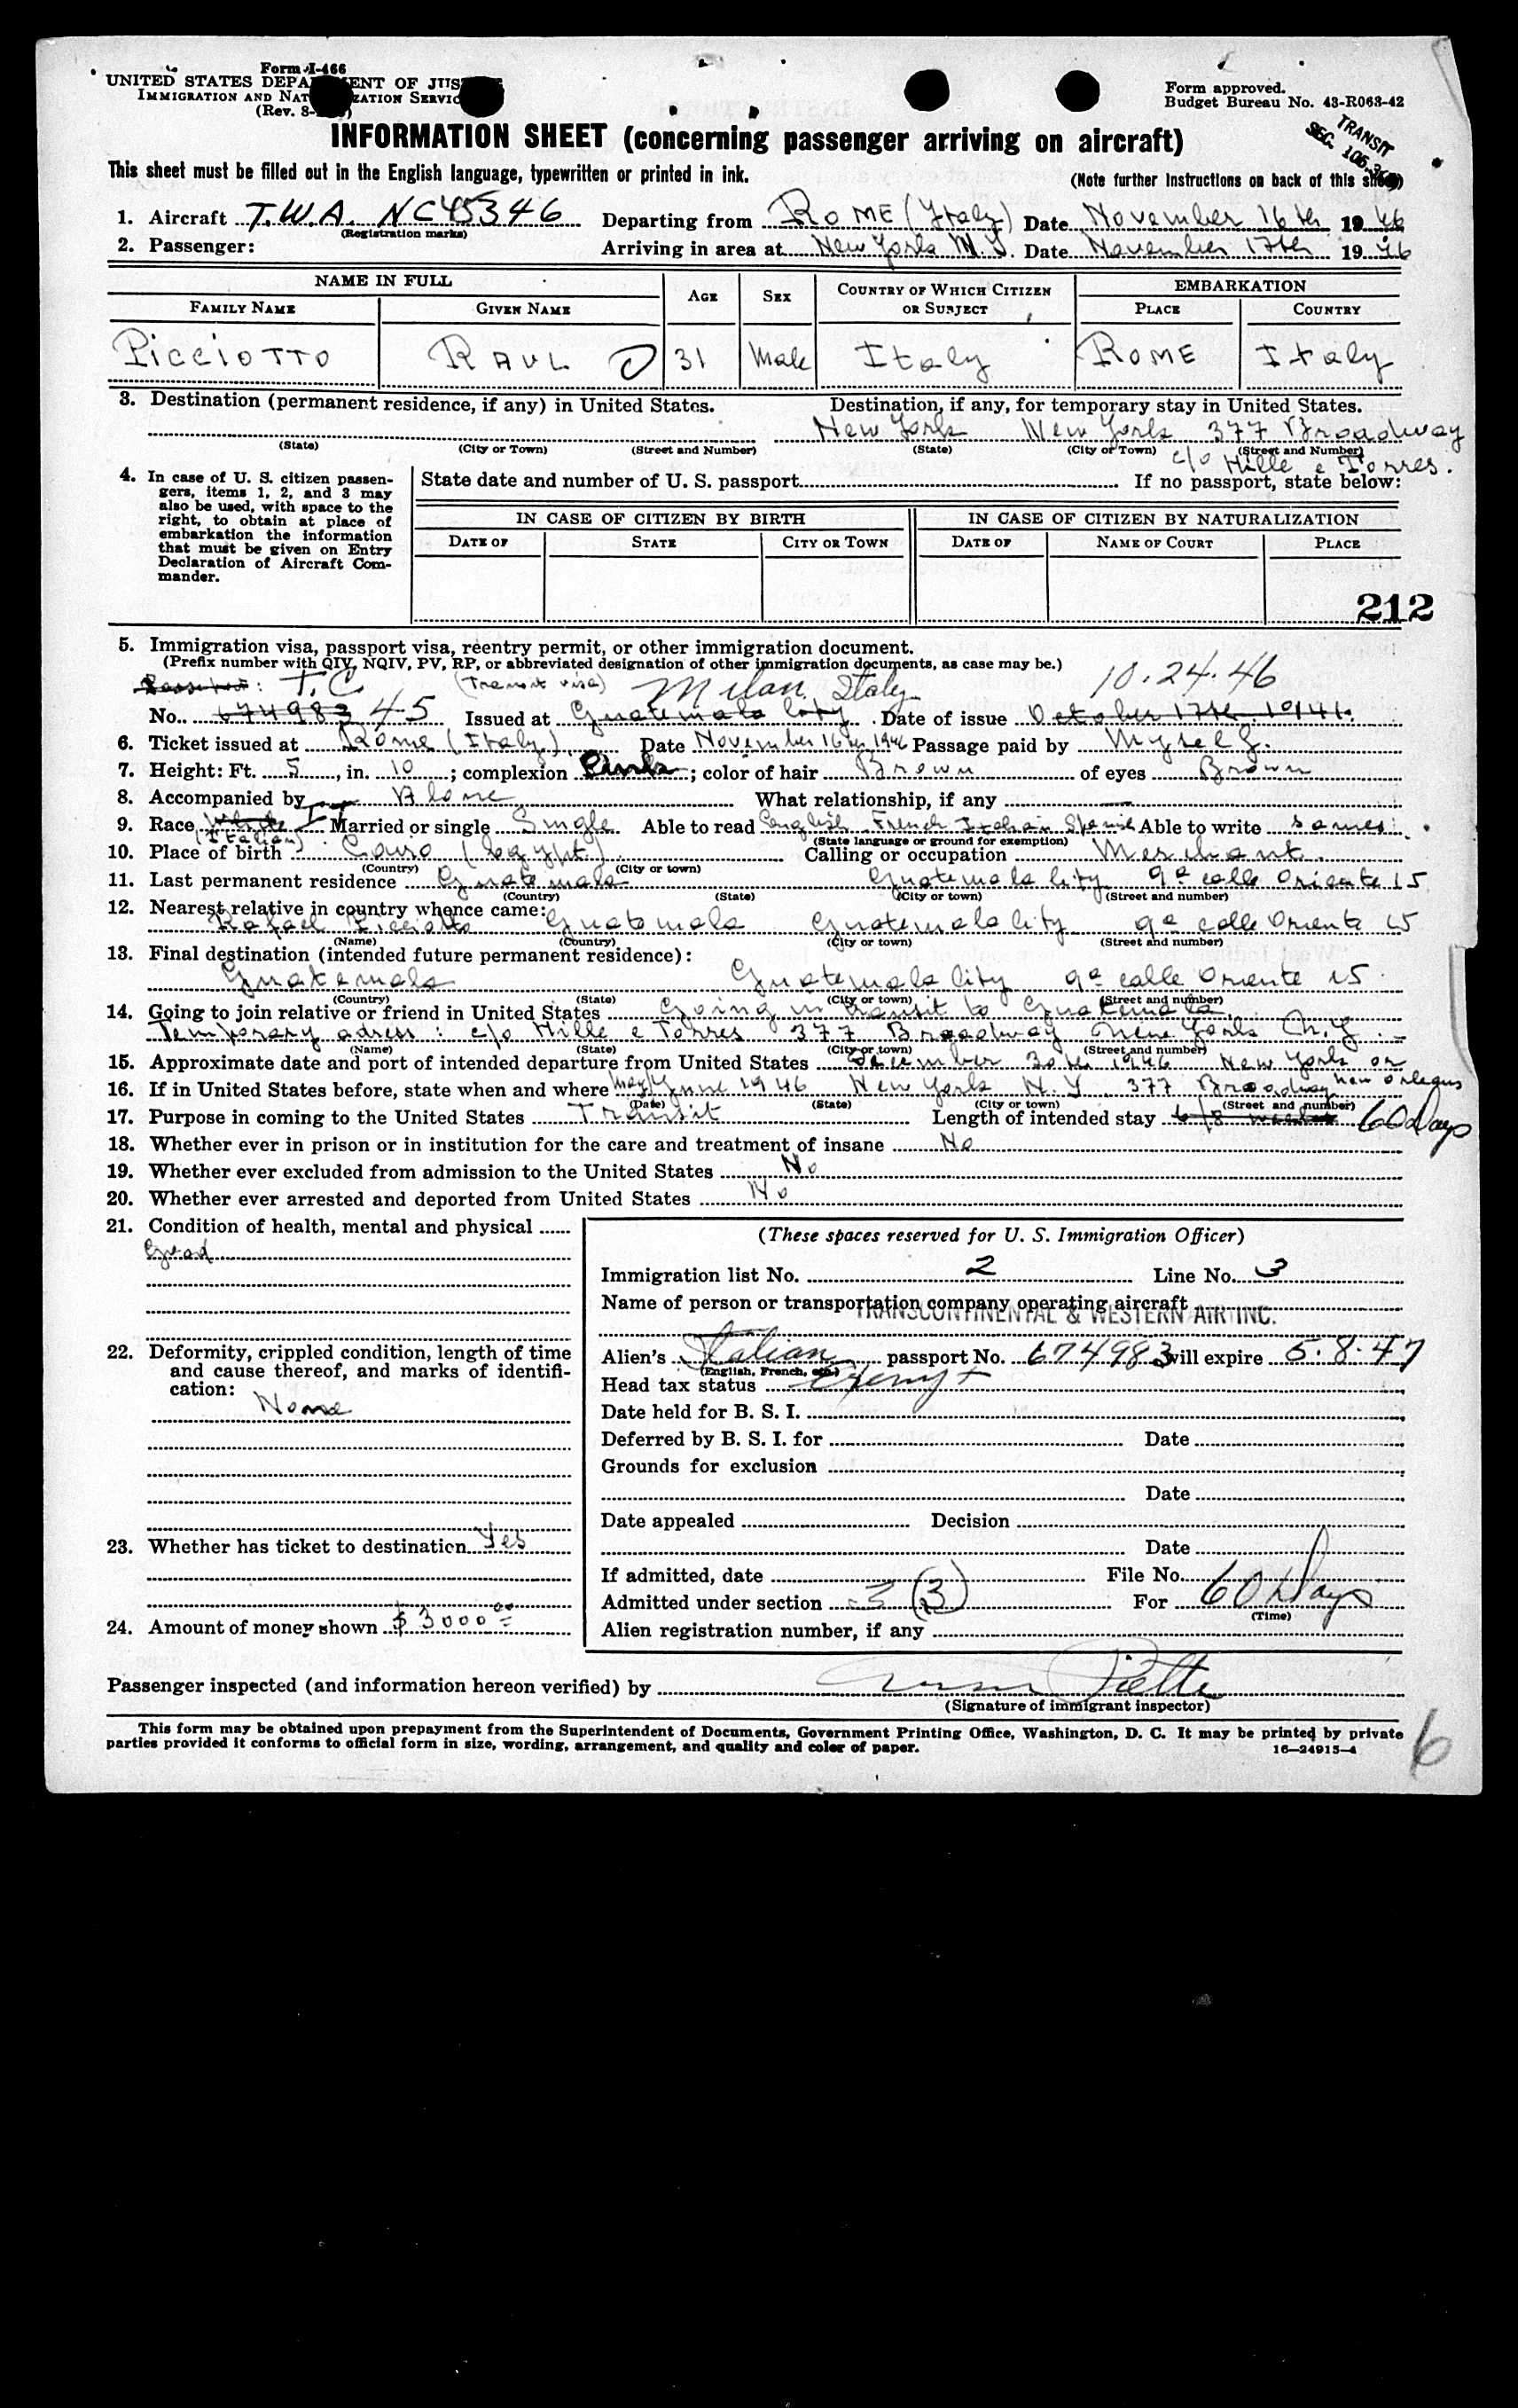 Form I-466
UNITED STATES DEPA ENT OF JUS
IMMIGRATION AND NAT ZATION SERVIC
(Rev. 8-
Form approved.
Budget Bureau No. 43-R063-42
TRANSIT
SEC. 105.3
INFORMATION SHEET (concerning passenger arriving on aircraft)
This sheet must be filled out in the English language, typewritten or printed in ink.
(Note further instructions on back of this sheet)
1. Aircraft T.W.A. NC45346 Departing from ROME (Italy) Date November 16th 1946
(Registration marks)
2. Passenger: Arriving in area at New York N.Y. Date November 17th 1946
NAME IN FULL AGE SEX COUNTRY OF WHICH CITIZEN OR SUBJECT EMBARKATION
FAMILY NAME GIVEN NAME PLACE COUNTRY
PICCIOTTO RAUL D 31 Male Italy ROME Italy
3. Destination (permanent residence, if any) in United States. Destination, if any, for temporary stay in United States.
New York New York 377 Broadway
(State) (City or Town) (Street and Number) (State) (City or Town) (Street and Number)
c/o Hille e Torres.
4. In case of U. S. citizen passen-
gers, items 1, 2, and 3 may
also be used, with space to the
right, to obtain at place of
embarkation the information
that must be given on Entry
Declaration of Aircraft Com-
mander.
State date and number of U. S. passport If no passport, state below:
IN CASE OF CITIZEN BY BIRTH IN CASE OF CITIZEN BY NATURALIZATION
DATE OF STATE CITY OR TOWN DATE OF NAME OF COURT PLACE
212
5. Immigration visa, passport visa, reentry permit, or other immigration document.
(Prefix number with QIV, NQIV, PV, RP, or abbreviated designation of other immigration documents, as case may be.)
Passport: T.C (Transit visa) Milan Italy 10.24.46
No. 674983 45 Issued at Guatemala City Date of issue October 17th 1941.
6. Ticket issued at Rome (Italy) Date November 16th 1946 Passage paid by Myself.
7. Height: Ft. 5, in. 10; complexion Pink; color of hair Brown of eyes Brown
8. Accompanied by Alone What relationship, if any —
9. Race White It Married or single Single Able to read English French Italian Spanis Able to write sames
(Italian) (State language or ground for exemption)
10. Place of birth Cairo (Egypt) Calling or occupation Merchant.
(Country) (City or town)
11. Last permanent residence Guatemala Guatemala City 9a calle Oriente 15
(Country) (State) (City or town) (Street and number)
12. Nearest relative in country whence came:
Rafael Picciotto Guatemala Guatemala City 9a calle Oriente 15
(Name) (Country) (City or town) (Street and number)
13. Final destination (intended future permanent residence):
Guatemala Guatemala City 9a calle Oriente 15
(Country) (State) (City or town) (Street and number)
14. Going to join relative or friend in United States Going in transit to Guatemala.
Temporary adress: c/o Hille e Torres 377 Broadway New York N.Y.
(Name) (State) (City or town) (Street and number)
15. Approximate date and port of intended departure from United States December 30th 1946 New York or
New Orleans
16. If in United States before, state when and where May/June 1946 New York N.Y. 377 Broadway
(Date) (State) (City or town) (Street and number)
17. Purpose in coming to the United States Transit Length of intended stay 6/8 weeks 60 Days
18. Whether ever in prison or in institution for the care and treatment of insane No
19. Whether ever excluded from admission to the United States No
20. Whether ever arrested and deported from United States No
21. Condition of health, mental and physical
Good
22. Deformity, crippled condition, length of time
and cause thereof, and marks of identifi-
cation:
None
23. Whether has ticket to destination Yes
24. Amount of money shown $ 3000 00
(These spaces reserved for U. S. Immigration Officer)
Immigration list No. 2 Line No. 3
Name of person or transportation company operating aircraft
TRANSCONTINENTAL & WESTERN AIR INC.
Alien's Italian passport No. 674983 will expire 5.8.47
(English, French, etc.)
Head tax status Exempt
Date held for B. S. I.
Deferred by B. S. I. for Date
Grounds for exclusion
Date
Date appealed Decision
Date
If admitted, date File No.
Admitted under section 3 (3) For 60 Days
(Time)
Alien registration number, if any
Passenger inspected (and information hereon verified) by
(Signature of immigrant inspector)
This form may be obtained upon prepayment from the Superintendent of Documents, Government Printing Office, Washington, D. C. It may be printed by private
parties provided it conforms to official form in size, wording, arrangement, and quality and color of paper.
16—24915-4
6